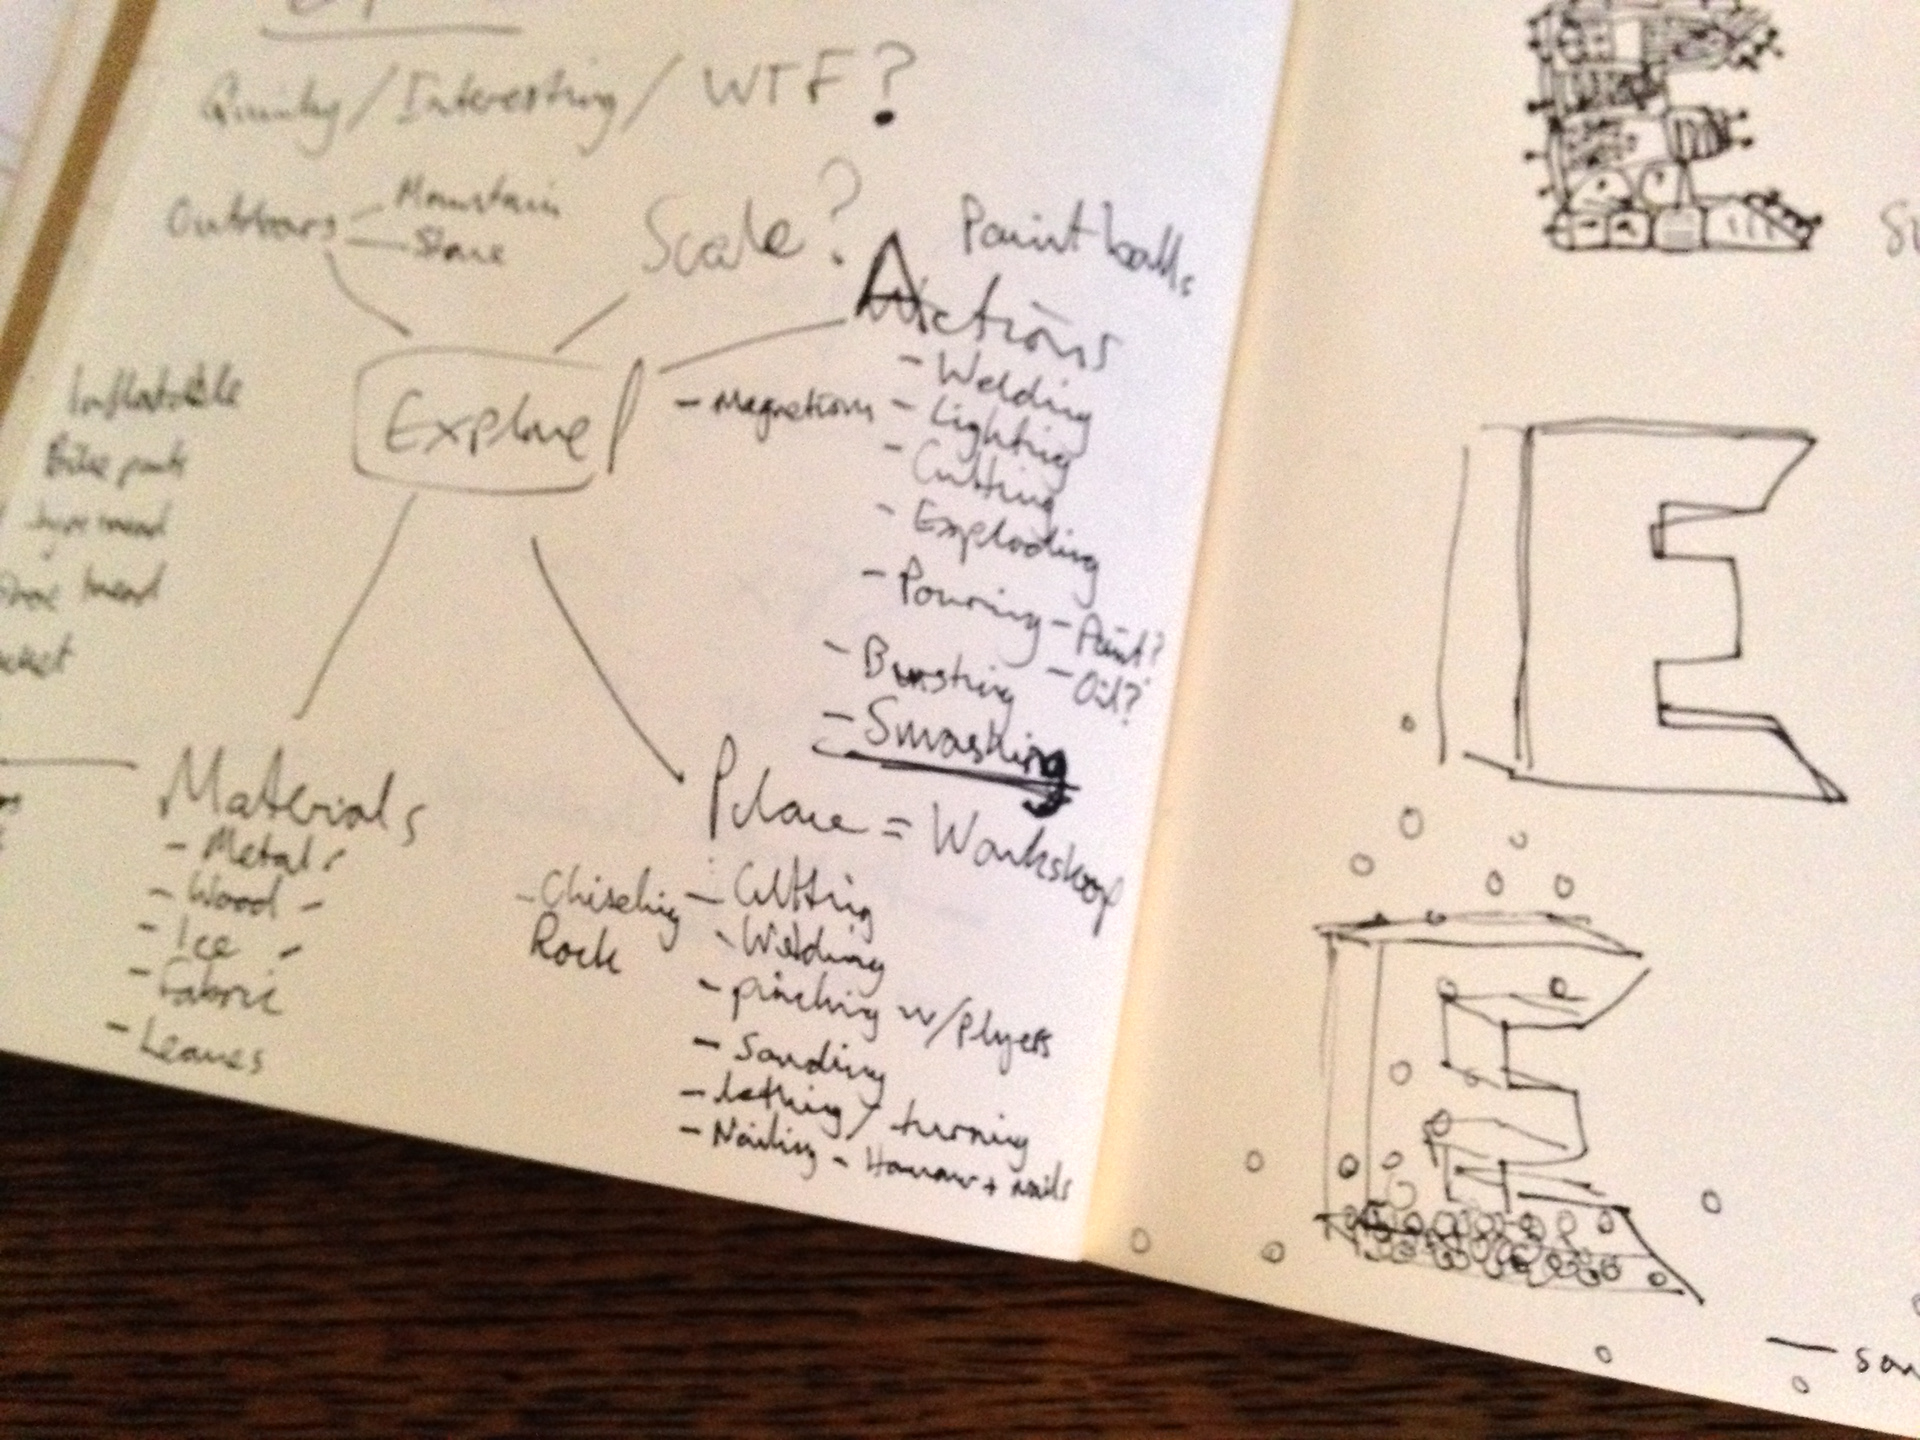 Quirky / Interesting / WTF?
Outdoors
Mountain
Stone
Scale?
Paintballs
Actions
- Welding
- Magnetism
- Lighting
- Cutting
- Exploding
- Pouring - Paint?
- Oil?
- Bursting
- Smashing
Explore
Inflatable
Bike parts
Materials
- Metal
- Wood -
- Ice -
- Fabric
- Leaves
Place = Workshop
- Chiseling Rock
- Cutting
- Welding
- pinching w/ plyers
- Sanding
- lathing / turning
- Nailing - Hammer + nails
E
E
E